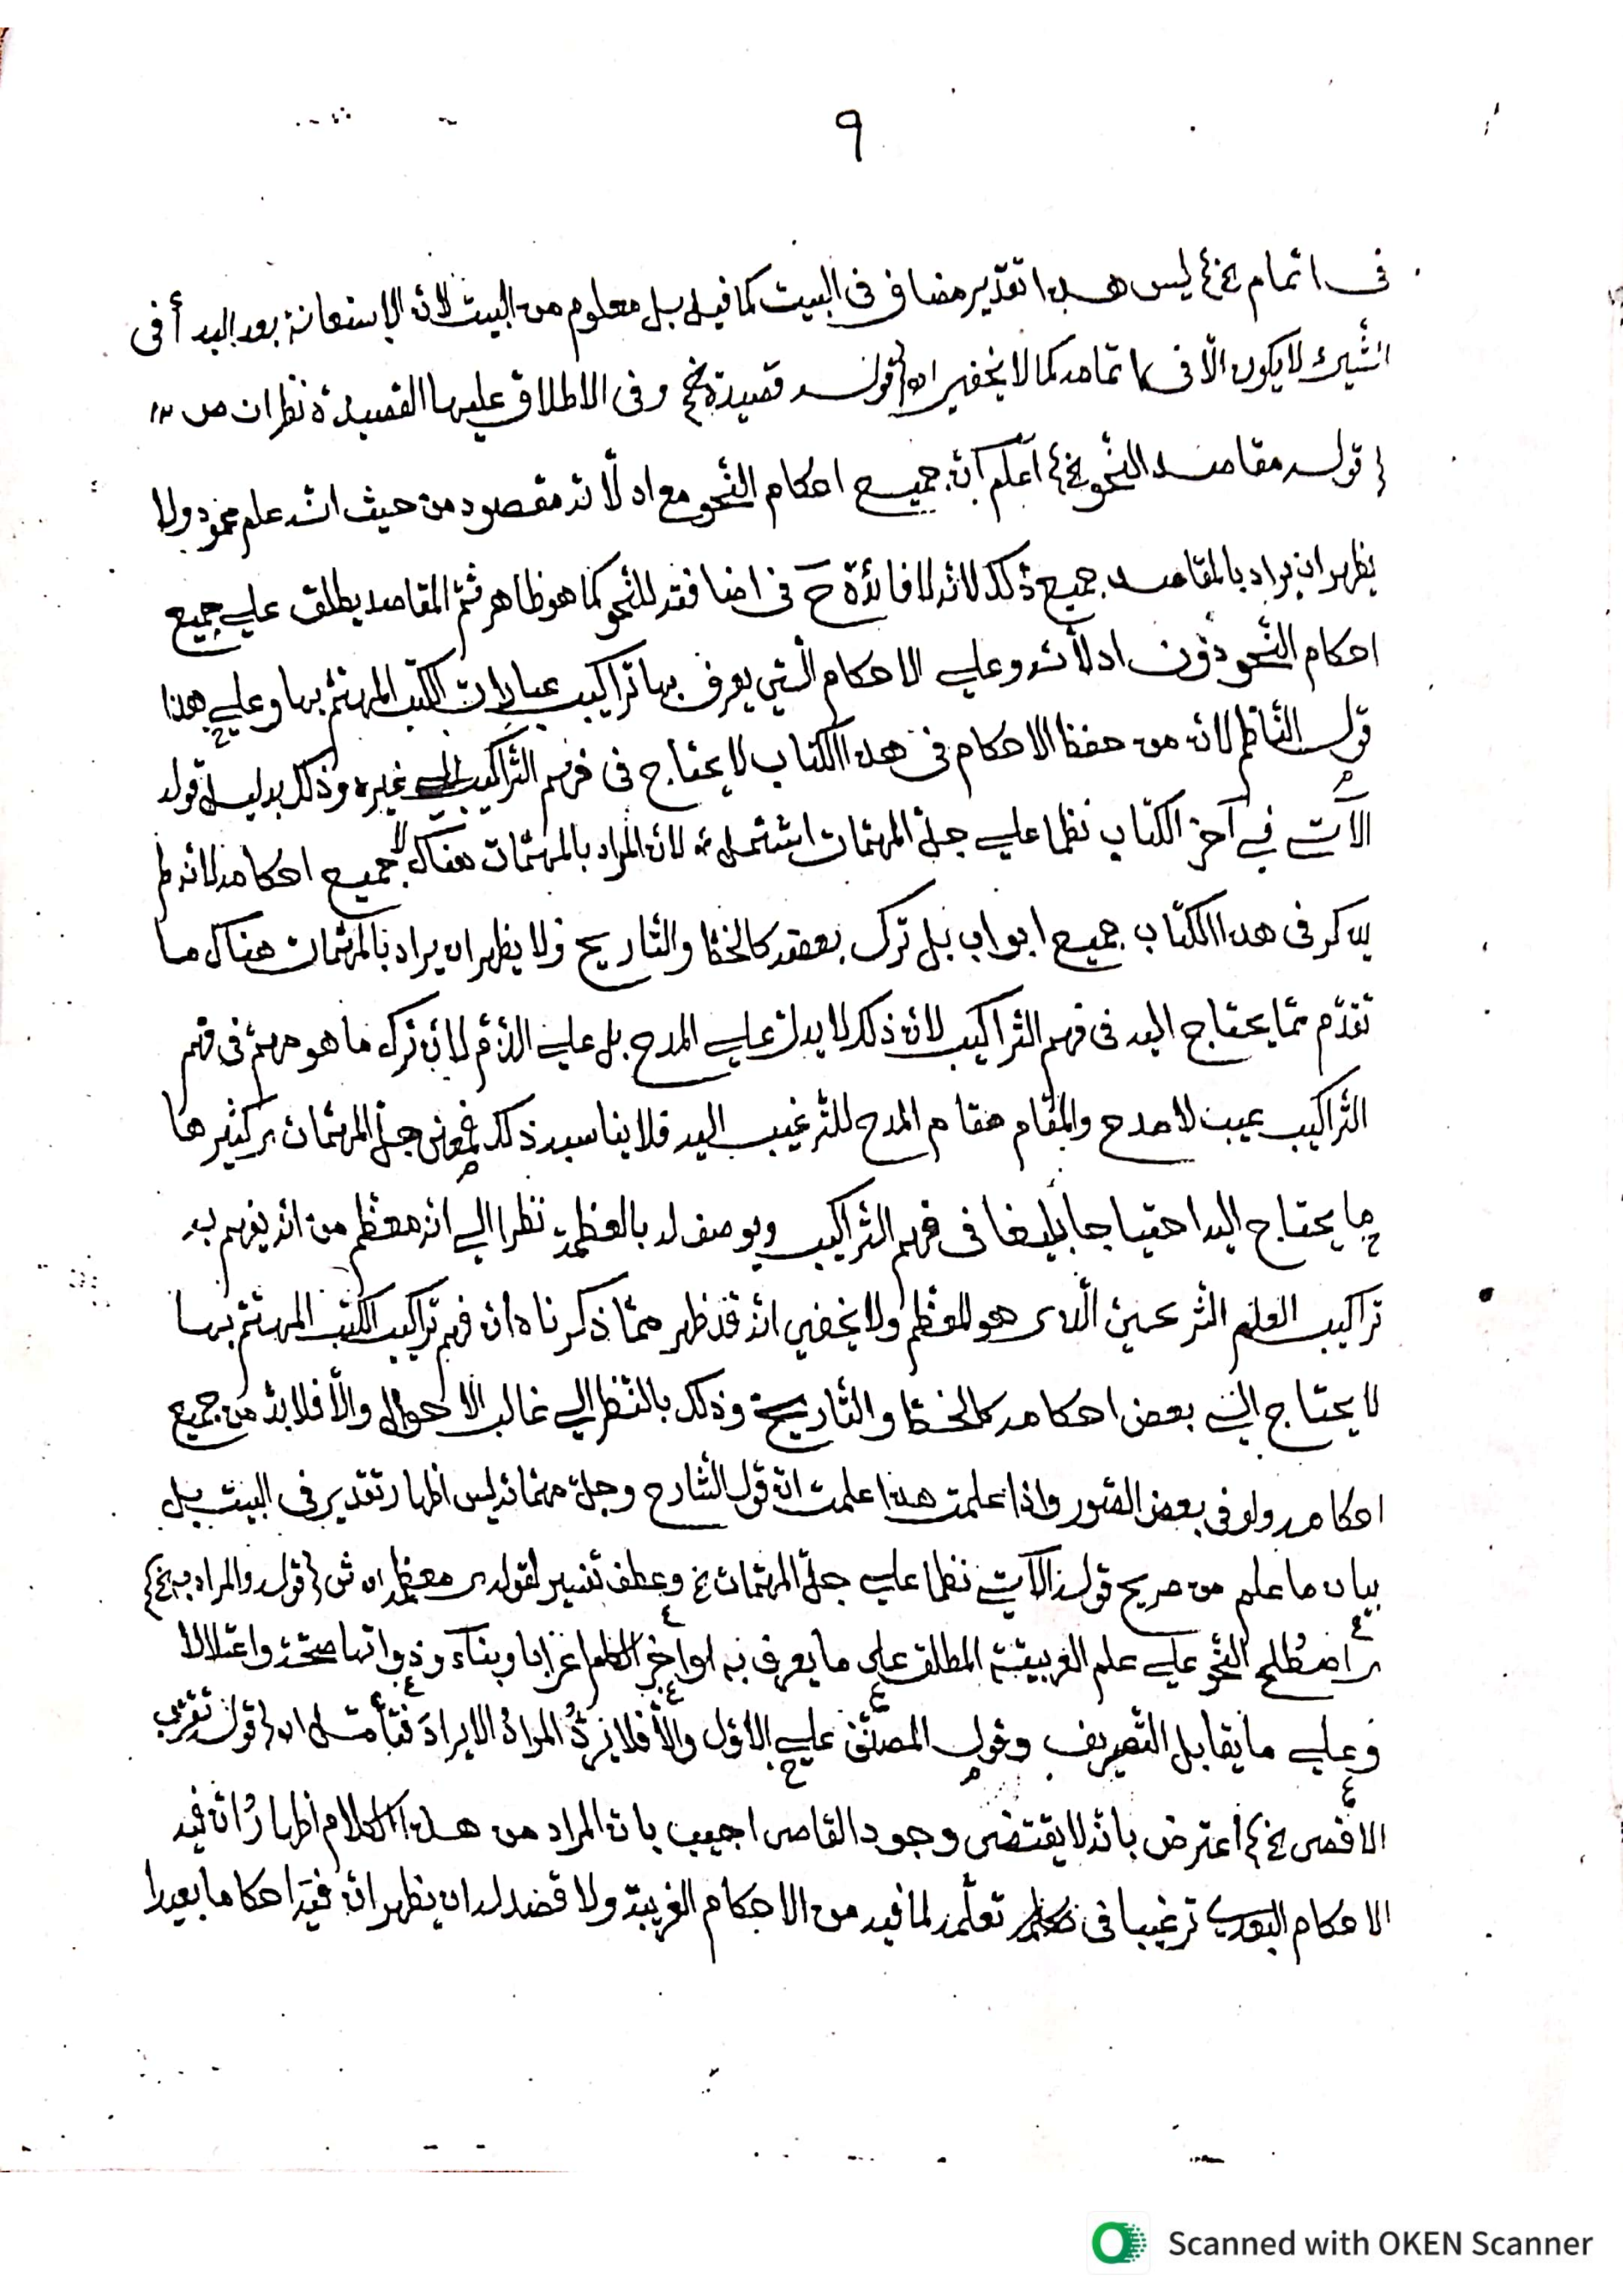 ٩
فى اتمام الخ} ليس هذا تقدير مضاف فى البيت كما قيل بل معلوم من البيت لان الاستعانة بعد البدأ فى
الشيئ لا يكون الّا فى اتمامه كما لا يخفى اه {قوله قصيدة الخ} وفى الاطلاق عليها القصيدة نظر ان ص ١٢
{قوله مقاصد النّحو الخ} اعلم انّ جميع احكام النّحو مع ادلّاته مقصود من حيث انّه علم محمود ولا
يظهر ان يراد بالمقاصد جميع ذلك لانّه لا فائدة ح فى اضافته للنّحو كما هو ظاهر ثمّ المقاصد يطلق على جميع
احكام النّحو دون ادلّاته وعلى الاحكام الّتى يعرف بها تراكيب عبارات الكتب المهتمّ بها وعلى هذا
قول النّاظم لانّ من حفظ الاحكام فى هذا الكتاب لا يحتاج فى فهم التّراكيب الى غيره وذلك بدليل قوله
الآتى فى آخر الكتاب نظما على جلّ المهمّات اشتمل لانّ المراد بالمهمّات هناك لا جميع احكامه لانّه لم
يذكر فى هذا الكتاب جميع ابواب بل ترك بعضه كالخنثا والتّاريح ولا يظهر ان يراد بالمهمّات هناك ما
تقدّم ممّا يحتاج اليه فى فهم التّراكيب لانّ ذلك لا يدلّ على المدح بل على الذّمّ لانّ ترك ما هو مهمّ فى فهم
التّراكيب عيب لا مدح والمقام مقام المدح للتّرغيب اليه فلا يناسبه ذلك فمعنى جلّ المهمّات اى كثيرها
ما يحتاج اليه احتياجا بليغا فى فهم التّراكيب ويوصف له بالعظمة نظرا الى انّه معظم من انّه يفهم به
تراكيب العلم الشّرعىّ الّذى هو المعظم ولا يخفى انّه قد ظهر ممّا ذكرناه ان فهم تراكيب الكتب المهتمّ بها
لا يحتاج الى بعض احكامه كالخنثا والتّاريح وذلك بالنّظر الى غالب الاحوال والّا فلا بدّ من جميع
احكامه ولو فى بعض الصّور واذا علمت هذا علمت انّ قول الشّارح وجلّ مهمّاته ليس اظهار تقدير فى البيت بل
بيان ما علم من صريح قوله الآتى نظما على جلّ المهمّات الخ وعطف تفسير لقوله اى معظمه اه ش {قوله والمراد به الخ}
اى اصطلح النّحو على علم العربيّة المطلق على ما يعرف به اواخر الكلم اعرابا وبناء وذواتها صحّة واعتلالا
وعلى ما يقابل التّصريف وقول المصنّف على الاوّل والّا فلا يردّ المراد الايراد فتأمّل اه {قوله تقرّب
الاقصى الخ} اعترض بانّه لا يقتضى وجود القاصى اجيب بانّ المراد من هذا الكلام اظهار انّ فيه
الاحكام البعدى ترغيبا فى تعلّمه لما فيه من الاحكام الغريبة ولا قصد له ان يظهر انّ فيه احكاما بعيدا
Scanned with OKEN Scanner